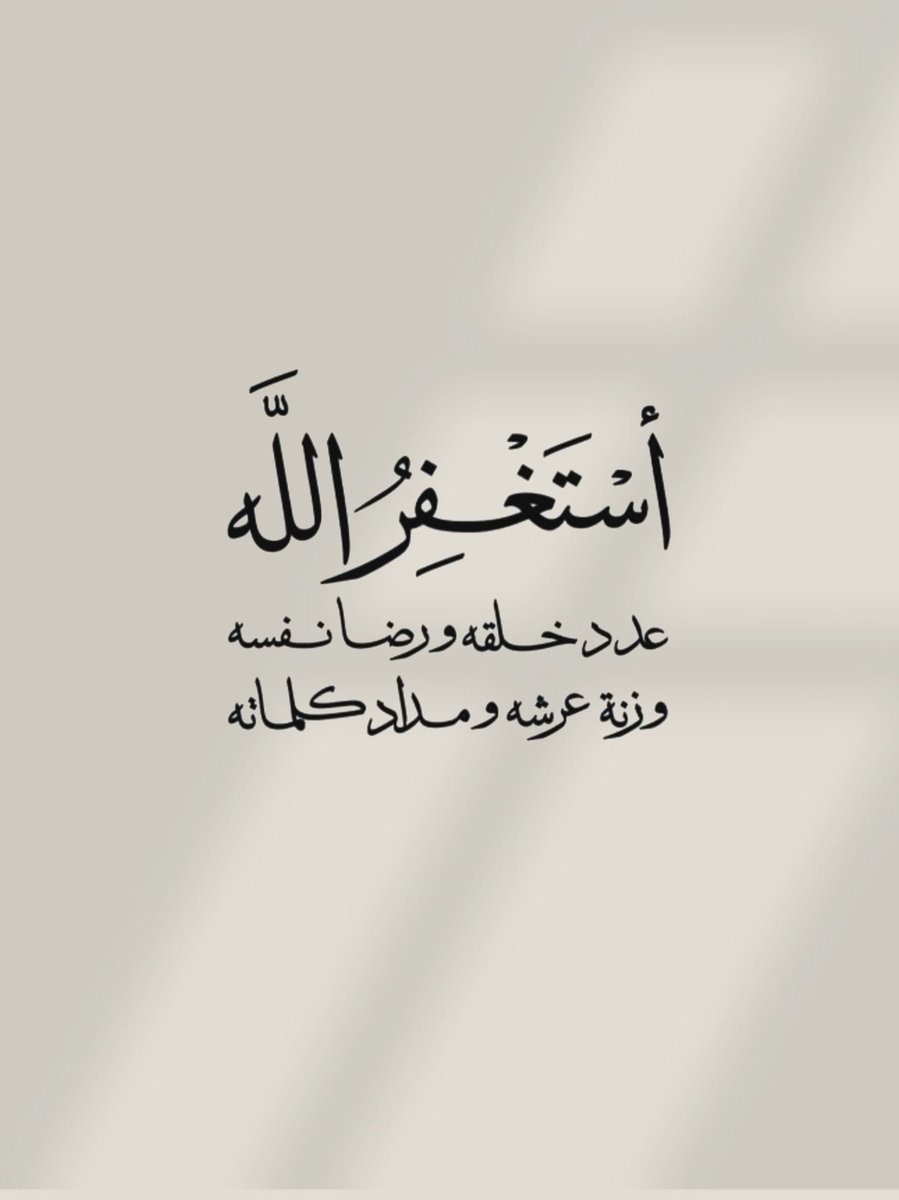 أسْتَغْفِرُ اللَّه
عدد خلقه ورضا نفسه
وزنة عرشه ومداد كلماته